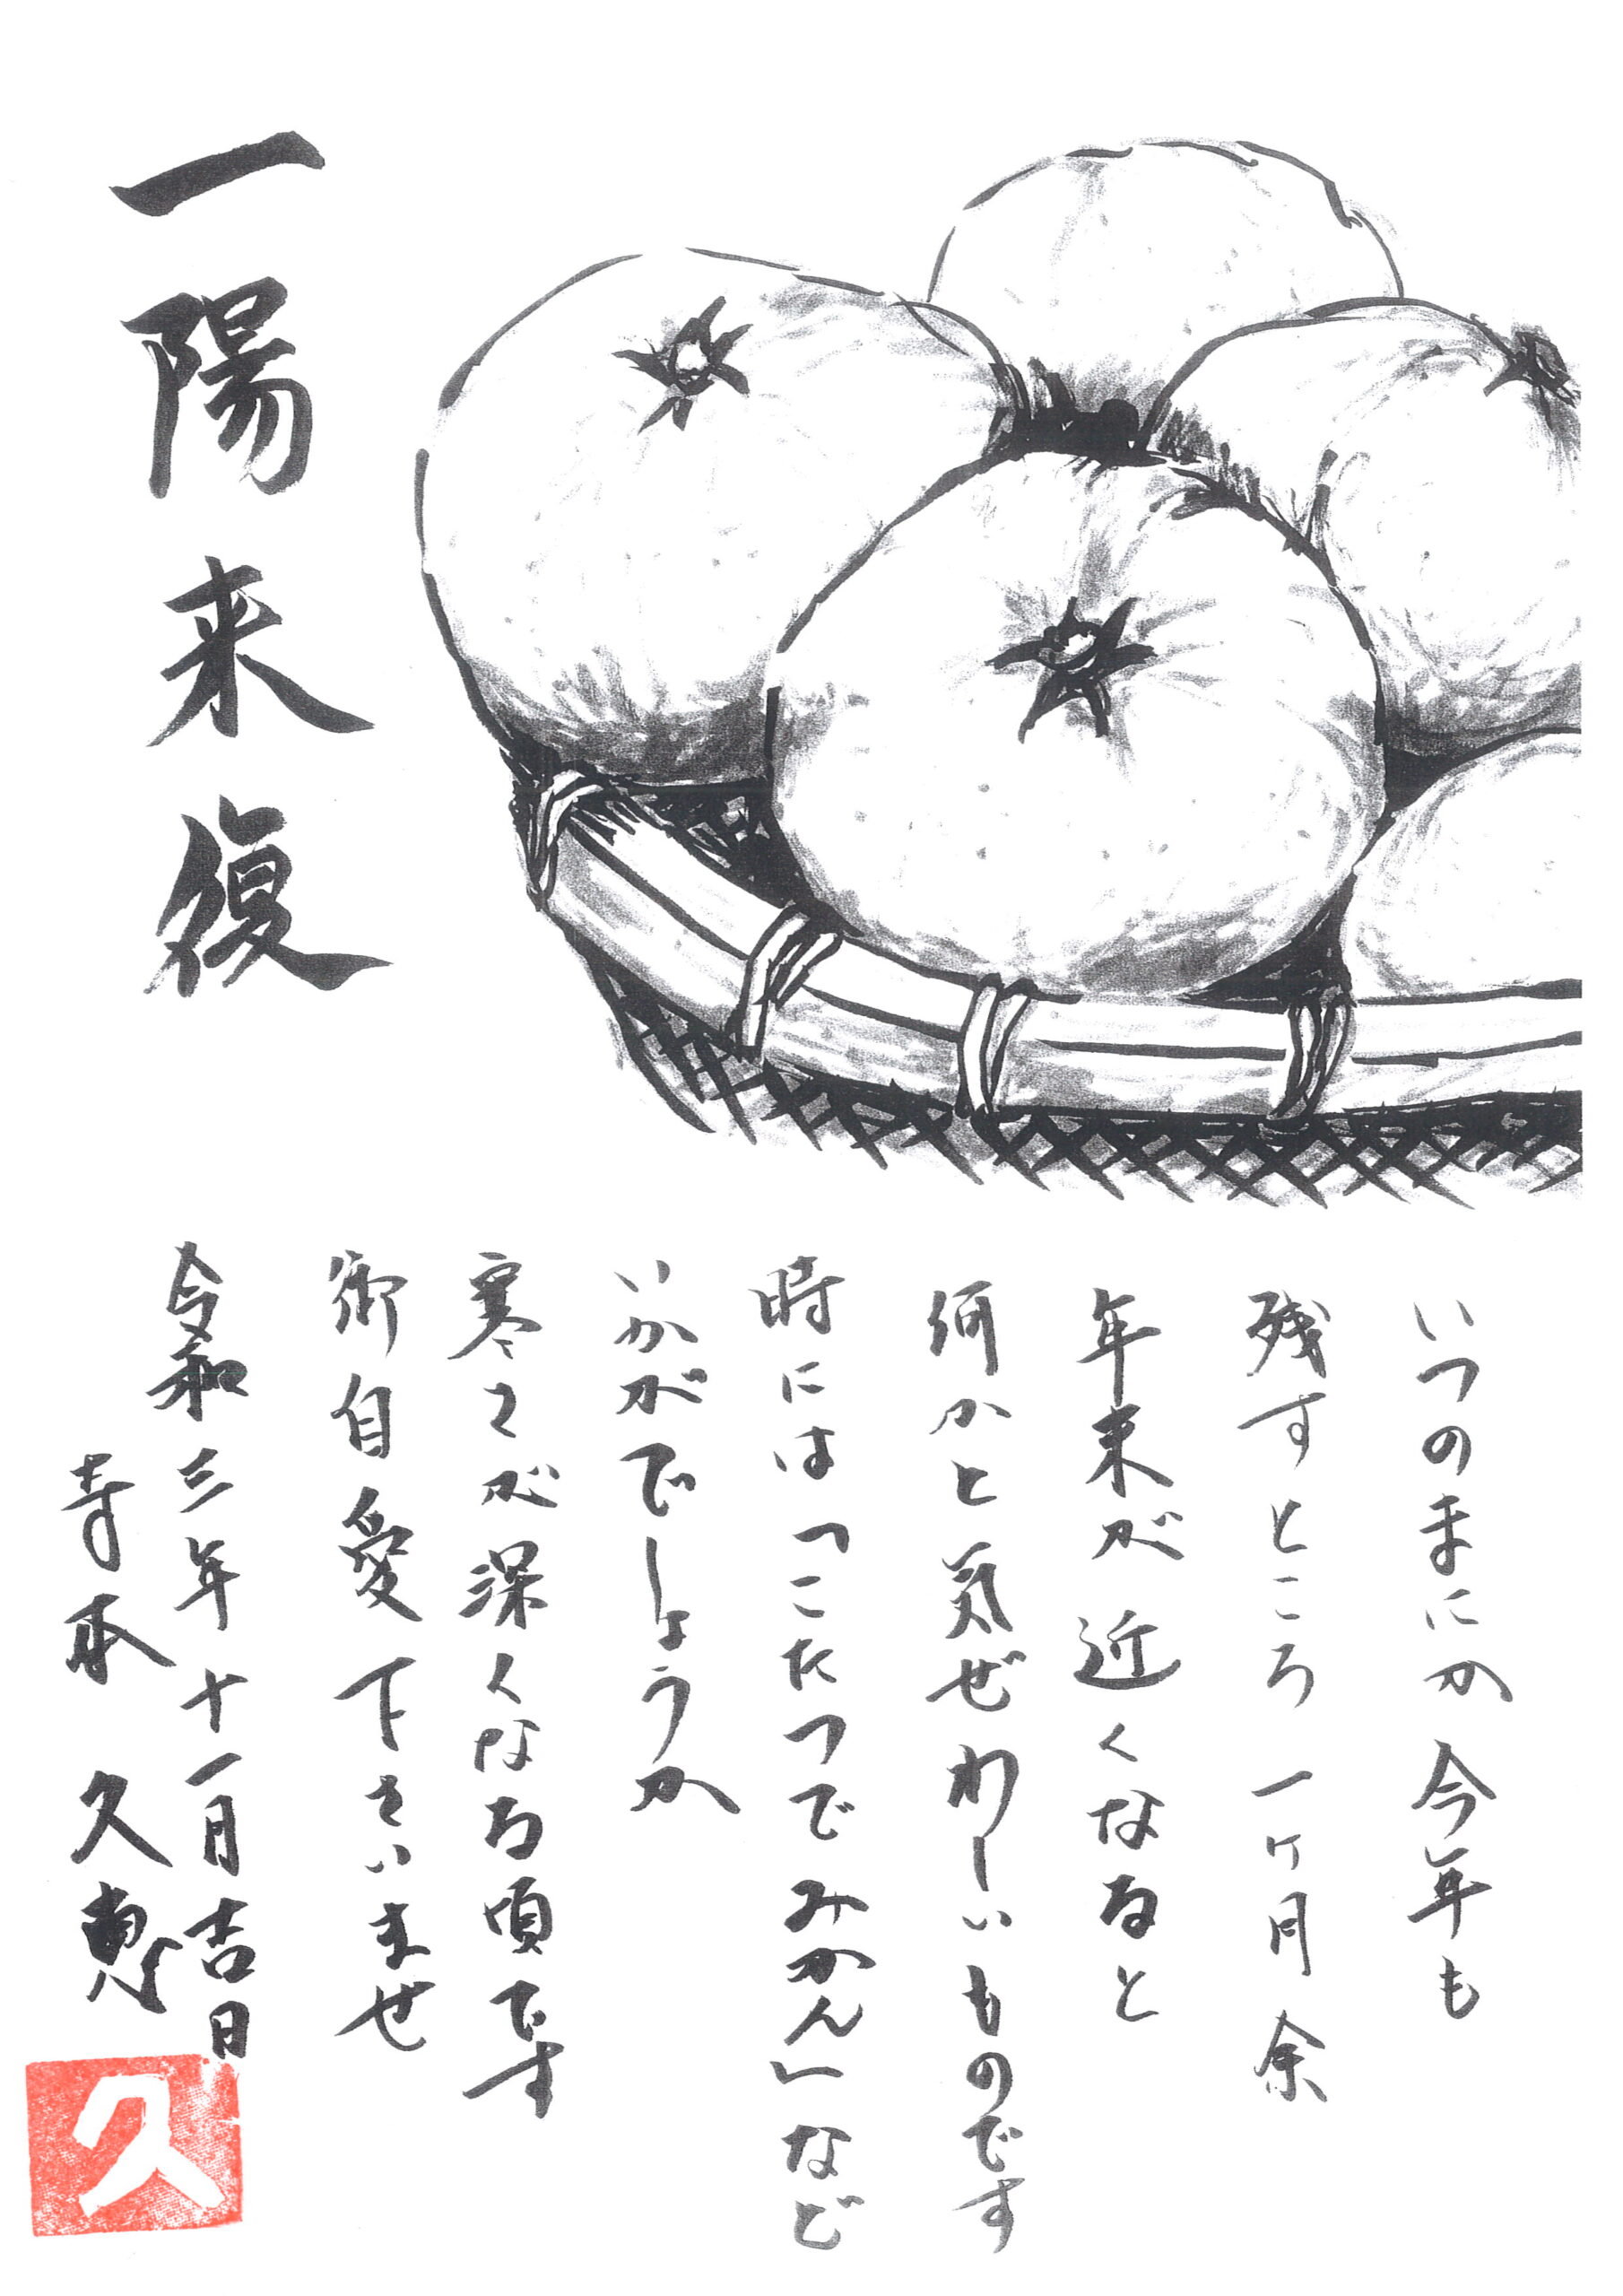 一陽来復
いつのまにか今年も
残すところ一ヶ月余
年末が近くなると
何かと気ぜわしいものです
時には「こたつでみかん」など
いかがでしょうか
寒さが深くなる頃です
御自愛下さいませ
令和三年十一月吉日
寺本 久恵
久